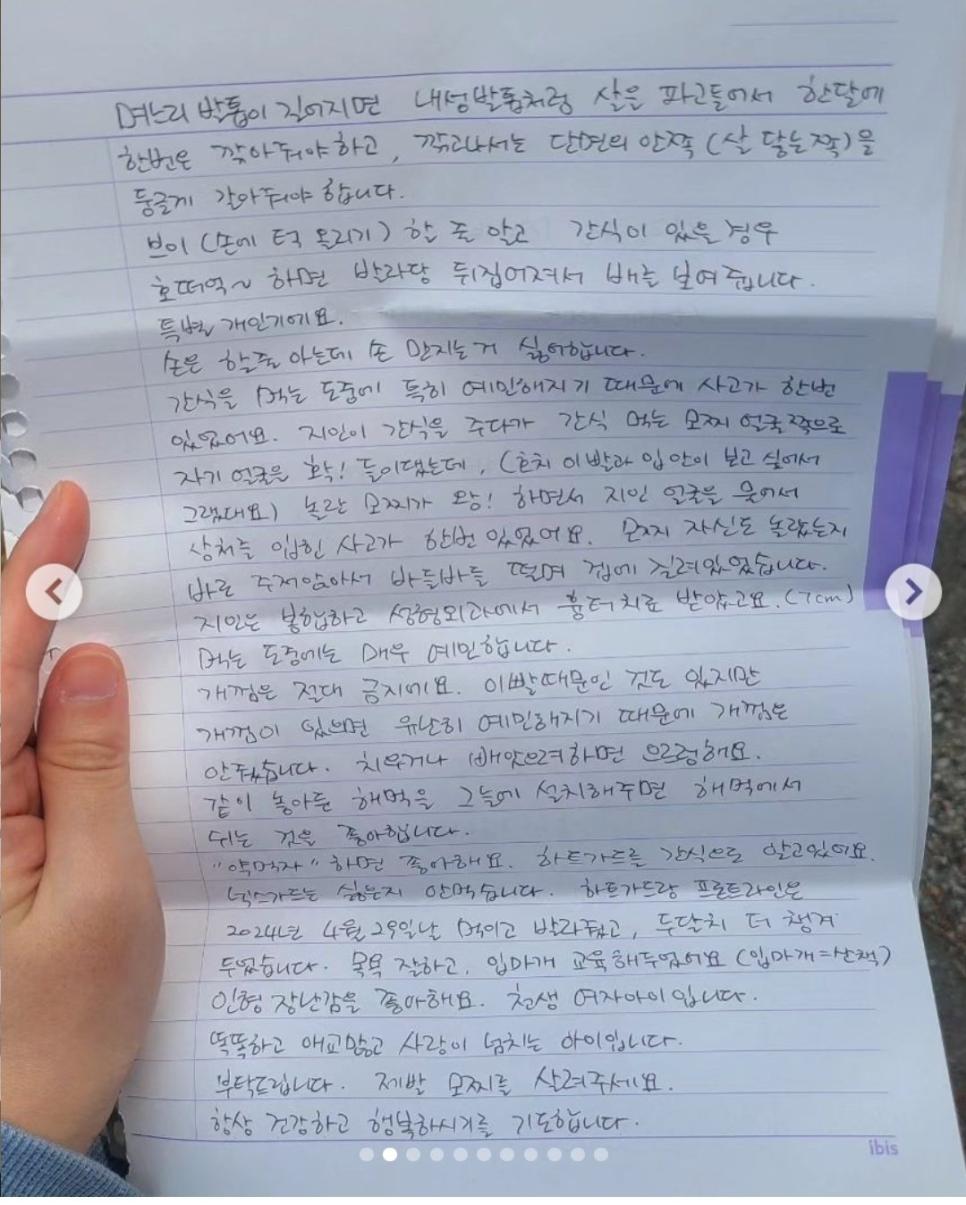 며느리 발톱이 길어지면 내성발톱처럼 살을 파고들어서 한달에
한번은 깎아줘야하고, 깎고나서는 단면의 안쪽(살 닿는쪽)을
둥글게 갈아줘야 합니다.
브이(손에 턱 올리기)할 줄 알고 간식이 있을 경우
호떠억~ 하면 발라당 뒤집어져서 배를 보여줍니다.
특별 개인기에요.
손은 할줄 아는데 손 만지는거 싫어합니다.
간식을 먹는 도중에 특히 예민해지기 때문에 사고가 한번
있었어요. 지인이 간식을 주다가 간식 먹는 모찌 얼굴쪽으로
자기 얼굴을 확! 들이댔는데, (충치 이빨과 입안이 보고 싶어서
그랬대요) 놀란 모찌가 왕! 하면서 지인 얼굴을 물어서
상처를 입힌 사고가 한번 있었어요. 모찌 자신도 놀랐는지
바로 주저앉아서 바들바들 떨며 겁에 질려있었습니다.
지인은 봉합하고 성형외과에서 흉터치료 받았고요. (7cm)
먹는 도중에는 매우 예민합니다.
개껌은 절대 금지에요. 이빨때문인 것도 있지만
개껌이 있으면 유난히 예민해지기 때문에 개껌은
안줬습니다. 치우거나 빼앗으려하면 으르렁해요.
같이 놓아둔 해먹을 그늘에 설치해주면 해먹에서
쉬는 것을 좋아합니다.
"약먹자" 하면 좋아해요. 하트가드를 간식으로 알고있어요.
넥스가드는 싫은지 안먹습니다. 하트가드랑 프론트라인은
2024년 4월 29일날 먹이고 발라줬고, 두달치 더 챙겨
두었습니다. 목욕 잘하고, 입마개 교육해두었어요 (입마개=산책)
인형 장난감을 좋아해요. 천생 여자아이입니다.
똑똑하고 애교많고 사랑이 넘치는 아이입니다.
부탁드립니다. 제발 모찌를 살려주세요.
항상 건강하고 행복하시기를 기도합니다.
ibis